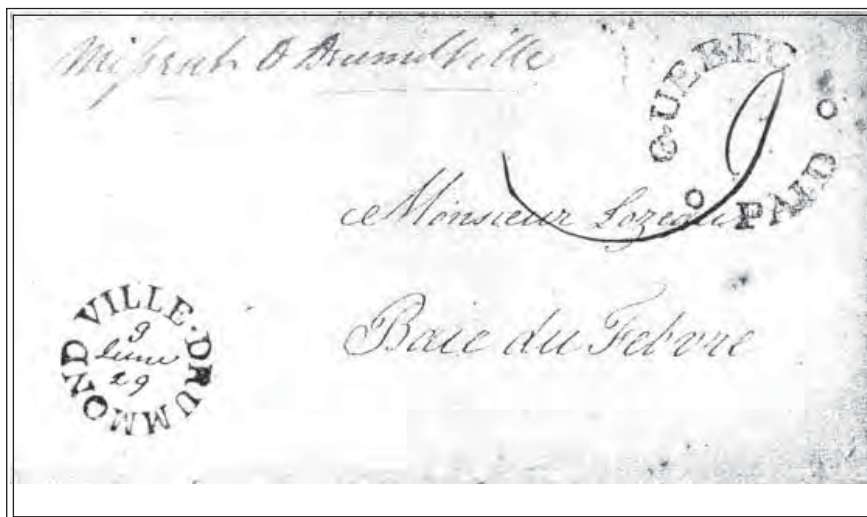 Missent to Drumdville
QUEBEC
PAID
9
Monsieur Lozeau
Baie du Febvre
DRUMMOND VILLE.
9
June
29